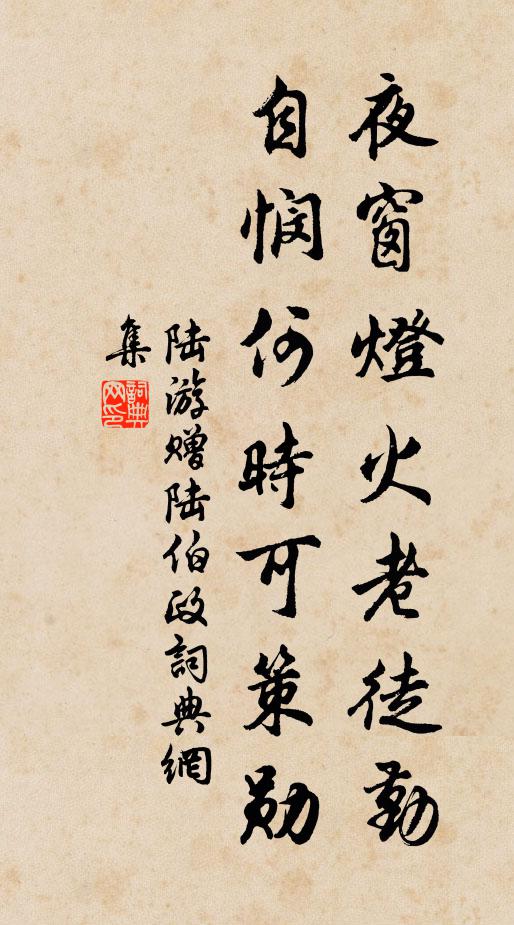 夜窗燈火老徒勤
自憫何時可策勛
陆游赠陆伯政詞典網
集
詞典
网印